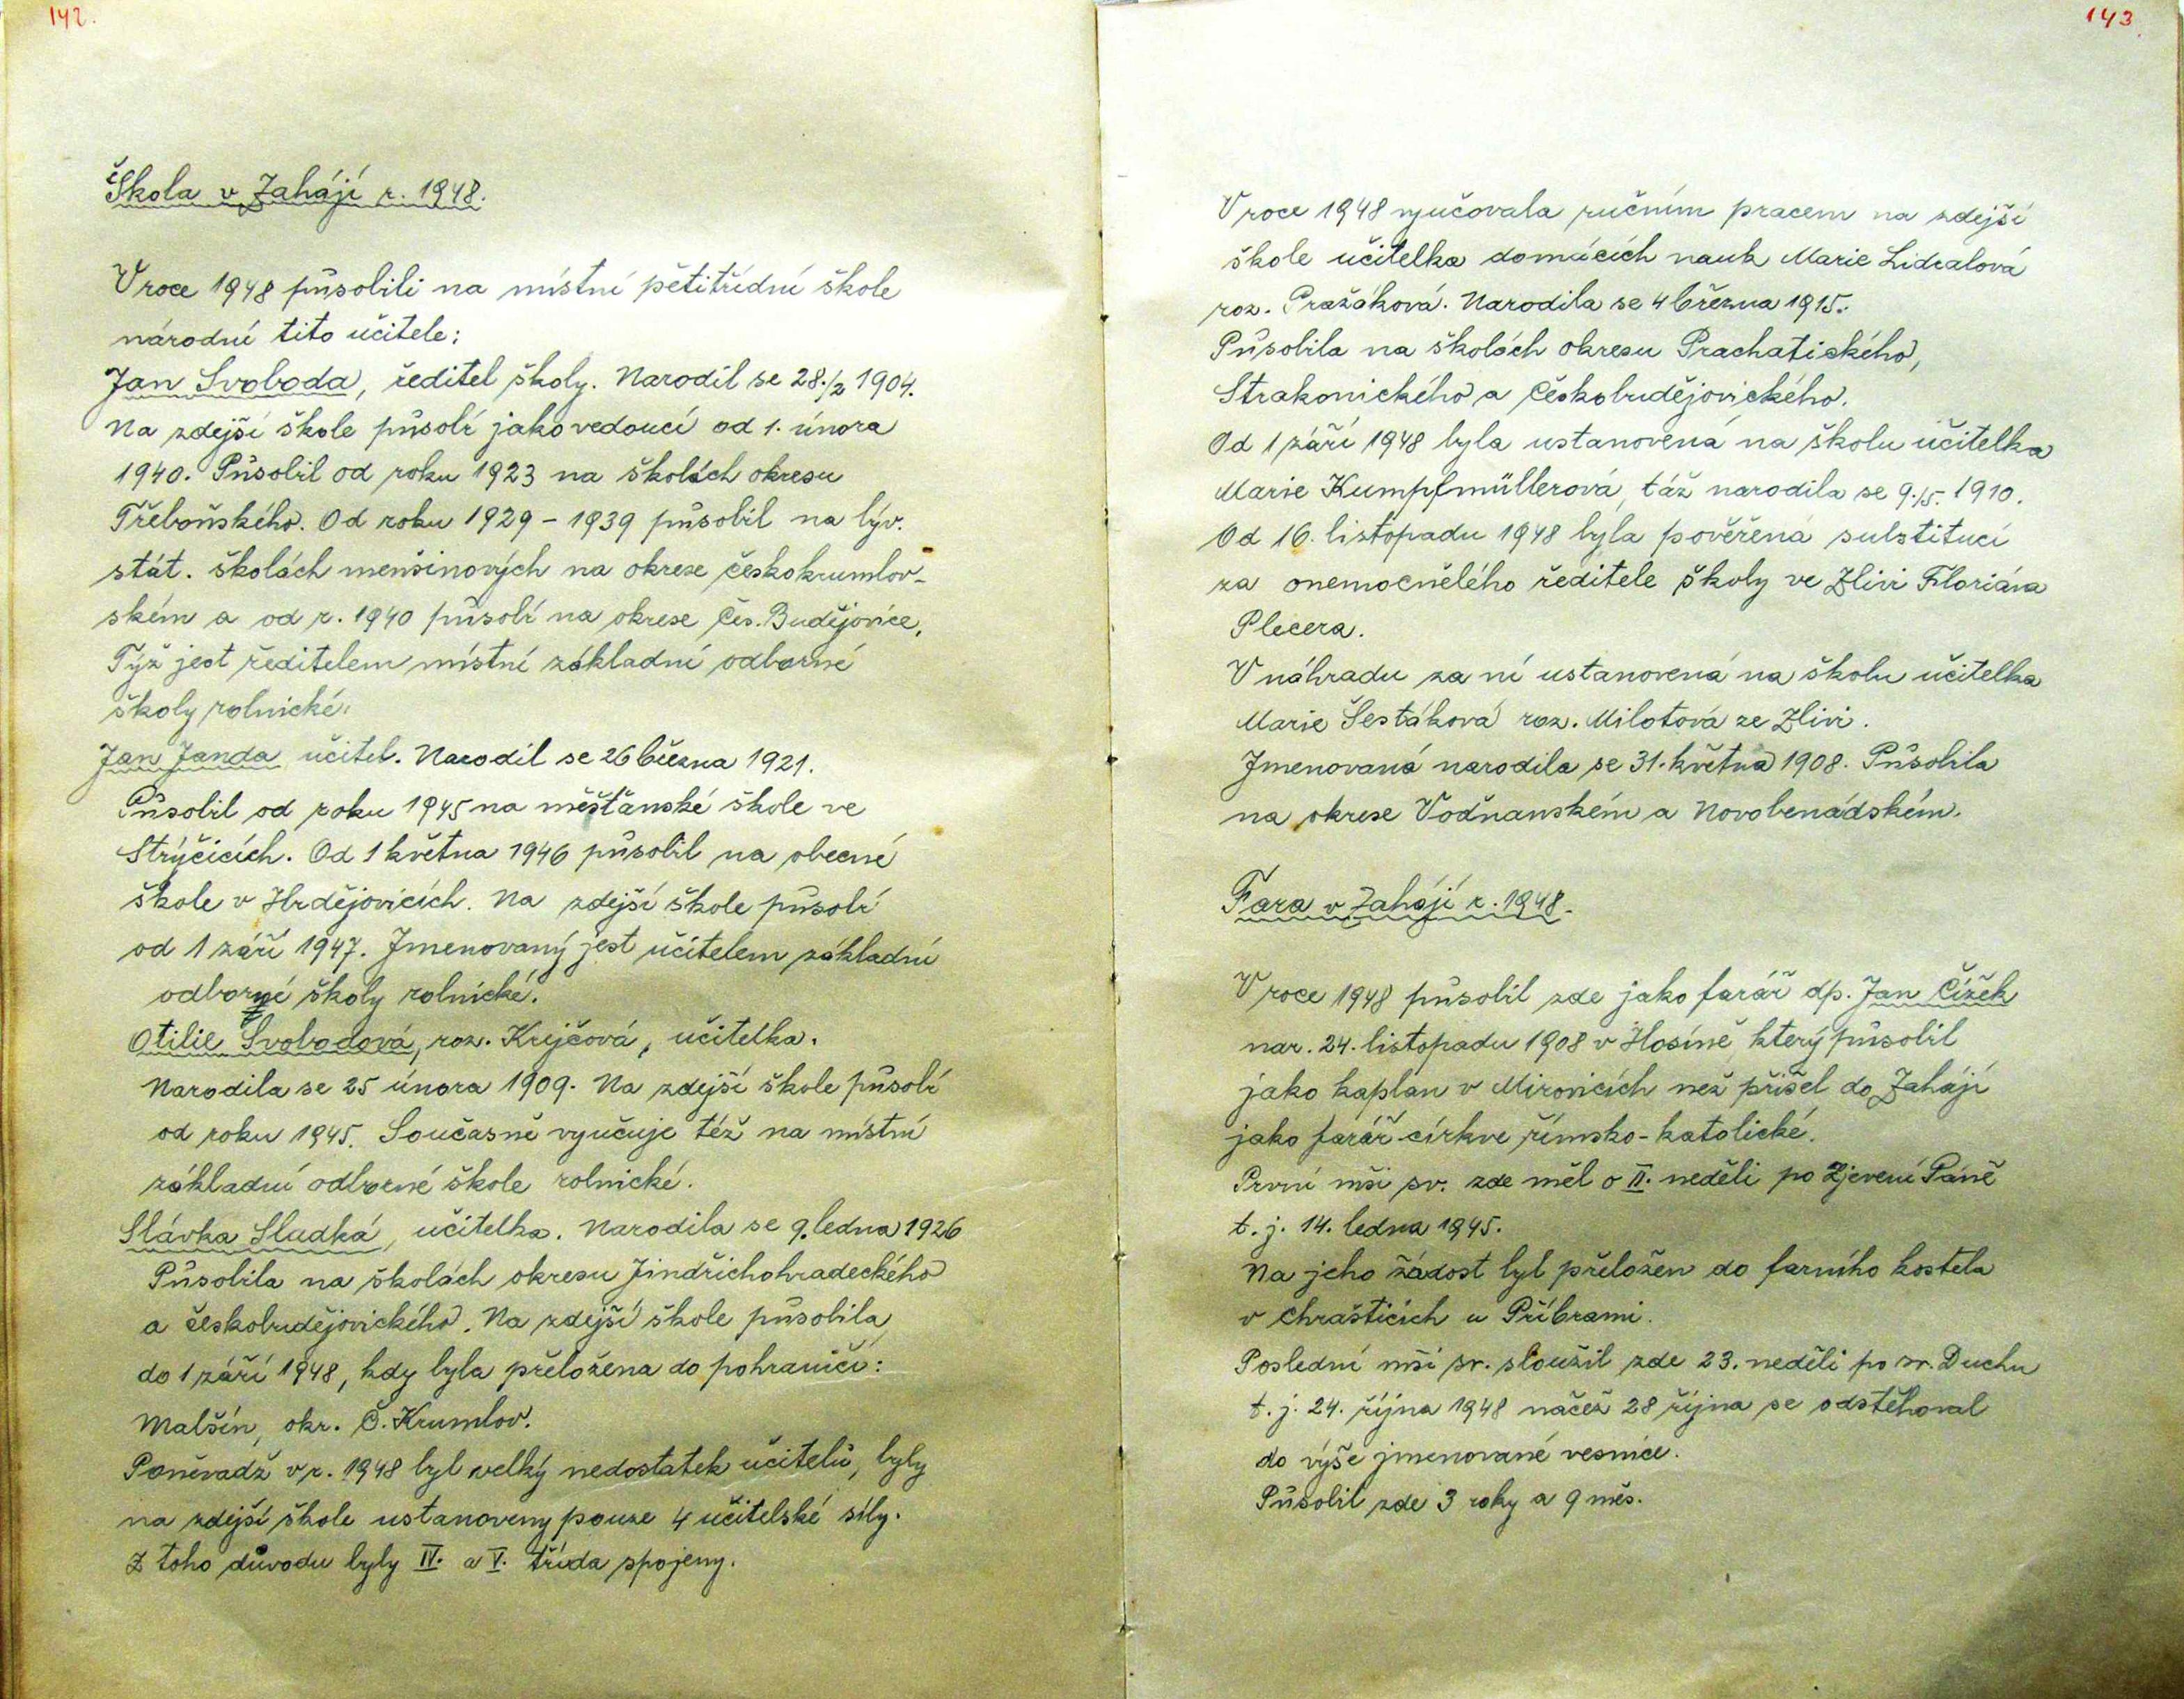 142.
Škola v Zahájí r. 1948.
V roce 1948 působili na místní pětitřídní škole
národní tito učitele:
Jan Svoboda, ředitel školy. Narodil se 28./2 1904.
Na zdejší škole působí jako vedoucí od 1. února
1940. Působil od roku 1923 na školách okresu
Třeboňského. Od roku 1929 - 1939 působil na býv.
stát. školách menšinových na okrese českokrumlov-
ském a od r. 1940 působí na okrese Čes. Budějovice.
Týž jest ředitelem místní základní odborné
školy rolnické.
Jan Janda učitel. Narodil se 26 března 1921.
Působil od roku 1945 na měšťanské škole ve
Strýčicích. Od 1 května 1946 působil na obecné
škole v Hrdějovicích. Na zdejší škole působí
od 1 září 1947. Jmenovaný jest učitelem základní
odborné školy rolnické.
Otilie Svobodová, roz. Krejčová, učitelka.
Narodila se 25 února 1909. Na zdejší škole působí
od roku 1945. Současně vyučuje též na místní
základní odborné škole rolnické.
Slávka Sladká, učitelka. Narodila se 9. ledna 1926
Působila na školách okresu Jindřichohradeckého
a českobudějovického. Na zdejší škole působila
do 1 září 1948, kdy byla přeložena do pohraničí:
Malšín, okr. Č. Krumlov.
Poněvadž v r. 1948 byl velký nedostatek učitelů, byly
na zdejší škole ustanoveny pouze 4 učitelské síly.
Z toho důvodu byly IV. a V. třída spojeny.
143.
V roce 1948 vyučovala ručním pracem na zdejší
škole učitelka domácích nauk Marie Lidralová
roz. Pražáková. Narodila se 4 března 1915.
Působila na školách okresu Prachatického,
Strakonického a Českobudějovického.
Od 1 září 1948 byla ustanovená na školu učitelka
Marie Kumpfmüllerová, táž narodila se 9./5. 1910.
Od 16. listopadu 1948 byla pověřená substitucí
za onemocnělého ředitele školy ve Zlivi Floriána
Plecera.
V náhradu za ní ustanovená na školu učitelka
Marie Šestáková roz. Milotová ze Zlivi.
Jmenovaná narodila se 31. května 1908. Působila
na okrese Vodňanském a Novobenádském.
Fara v Zahájí r. 1948.
V roce 1948 působil zde jako farář dp. Jan Čížek
nar. 24. listopadu 1908 v Hosíně, který působil
jako kaplan v Mirovicích než přišel do Zahájí
jako farář církve římsko-katolické.
První mši sv. zde měl o II. neděli po Zjevení Páně
t. j. 14. ledna 1945.
Na jeho žádost byl přeložen do farního kostela
v Chrašticích u Příbrami.
Poslední mši sv. sloužil zde 23. neděli po sv. Duchu
t. j. 24. října 1948 načež 28 října se odstěhoval
do výše jmenované vesnice.
Působil zde 3 roky a 9 měs.